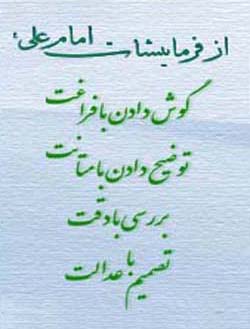 از فرمایشات امام علی؛
گوش دادن با فراغت
توضیح دادن با متانت
بررسی با دقت
تصمیم با عدالت